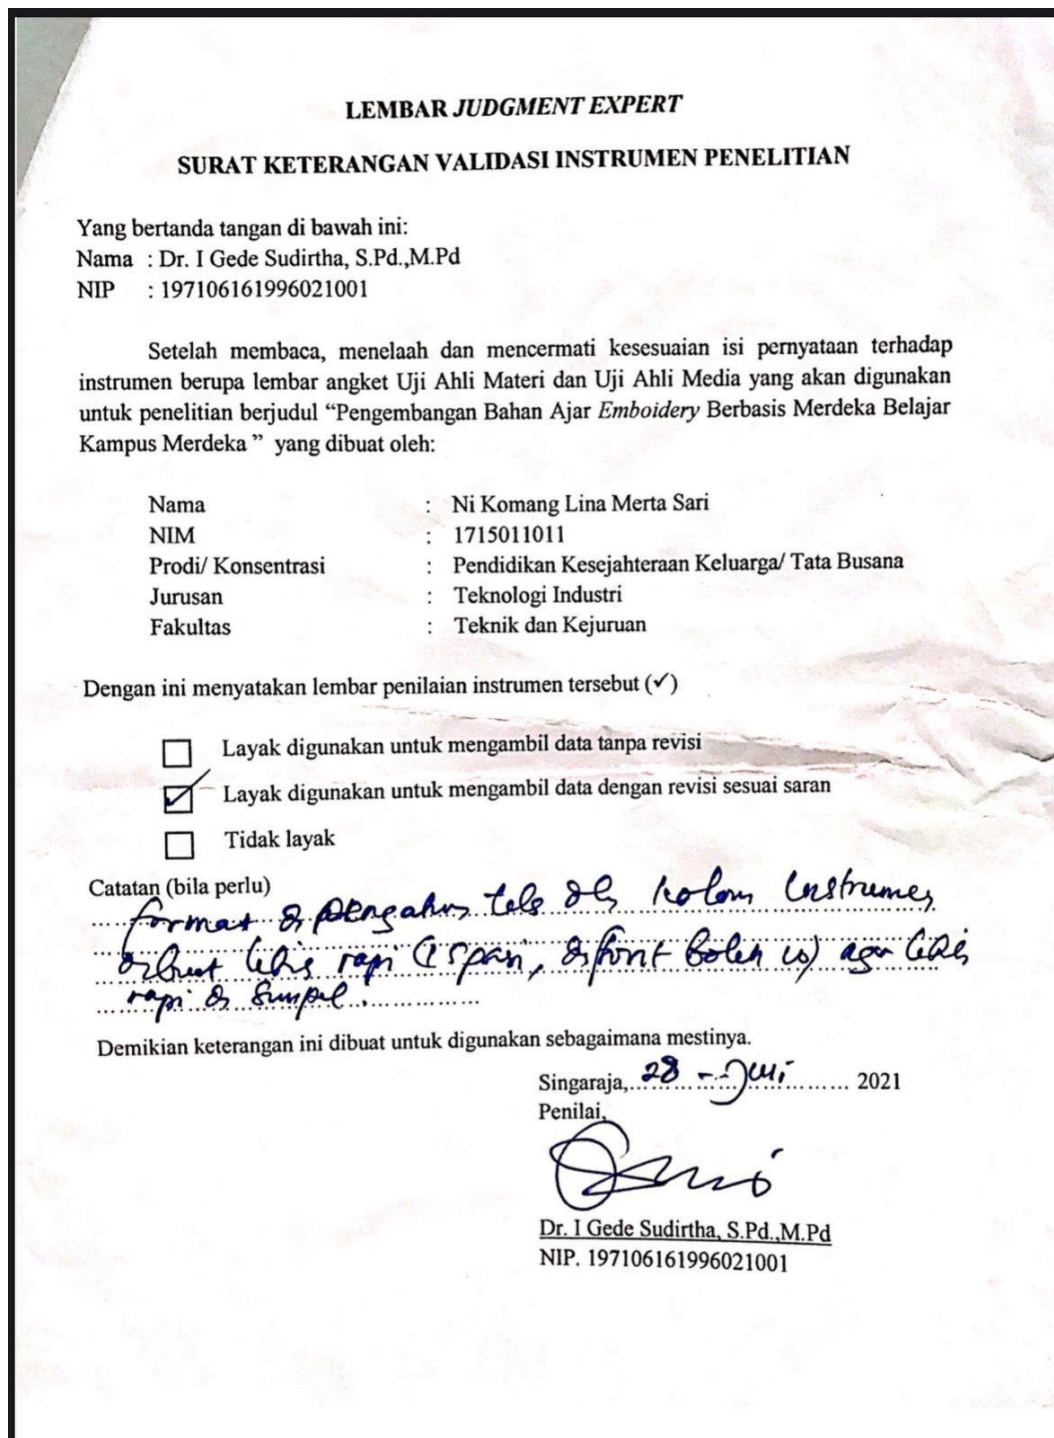 LEMBAR JUDGMENT EXPERT
SURAT KETERANGAN VALIDASI INSTRUMEN PENELITIAN
Yang bertanda tangan di bawah ini:
Nama : Dr. I Gede Sudirtha, S.Pd.,M.Pd
NIP : 197106161996021001
Setelah membaca, menelaah dan mencermati kesesuaian isi pernyataan terhadap
instrumen berupa lembar angket Uji Ahli Materi dan Uji Ahli Media yang akan digunakan
untuk penelitian berjudul “Pengembangan Bahan Ajar Emboidery Berbasis Merdeka Belajar
Kampus Merdeka ” yang dibuat oleh:
Nama : Ni Komang Lina Merta Sari
NIM : 1715011011
Prodi/ Konsentrasi : Pendidikan Kesejahteraan Keluarga/ Tata Busana
Jurusan : Teknologi Industri
Fakultas : Teknik dan Kejuruan
Dengan ini menyatakan lembar penilaian instrumen tersebut (✓)
Layak digunakan untuk mengambil data tanpa revisi
Layak digunakan untuk mengambil data dengan revisi sesuai saran
Tidak layak
Catatan (bila perlu)
format kolom
rapi (1 spasi, font boleh 10) agar
rapi
Demikian keterangan ini dibuat untuk digunakan sebagaimana mestinya.
Singaraja, 28 - 2021
Penilai,
Dr. I Gede Sudirtha, S.Pd.,M.Pd
NIP. 197106161996021001